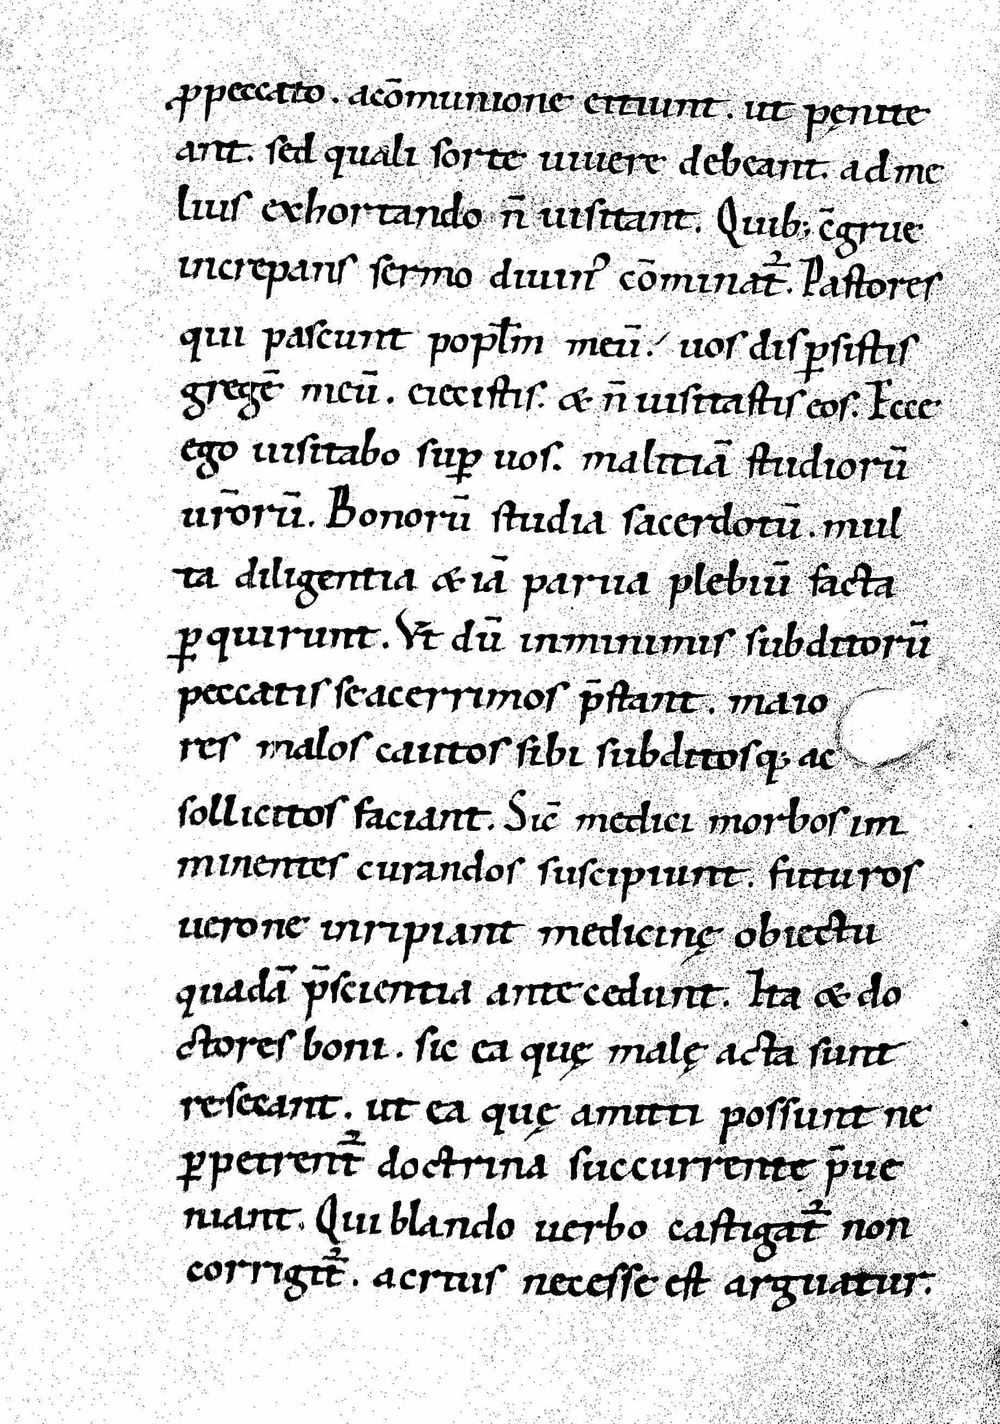 ꝓpeccato. acōmunione eitiunt. ut pęnite
ant. sed quali sorte uiuere debeant. ad me
lius exhortando n̄ uisitant. Quib; c̄grue
increpans sermo diuin᾽ cōminat᷑. Pastores
qui pascunt popl̄m meū. uos disꝑsistis
gregē meū. eiecistis. & n̄ uisitastis eos. Ecce
ego uisitabo suꝑ uos. malitiā studiorū
ur̄orū. Bonorū studia sacerdotū. mul
ta diligentia & iā parua plebiū facta
ꝑquirunt. Vt dū inminimis subditorū
peccatis seacerrimos p̄stant. maio
res malos cautos sibi subditosq; ac
sollicitos faciant. Sic̄ medici morbos im
minentes curandos suscipiunt. futuros
uerone inripiant medicinę obiectu
quadā p̄scientia antecedunt. Ita & do
ctores boni. sic ea quę malę acta sunt
resecant. ut ea quę amitti possunt ne
ꝑpetrent᷑ doctrina succurrente p̄ue
niant. Qui blando uerbo castigat᷑ non
corrigit᷑. acrius necesse est arguatur.